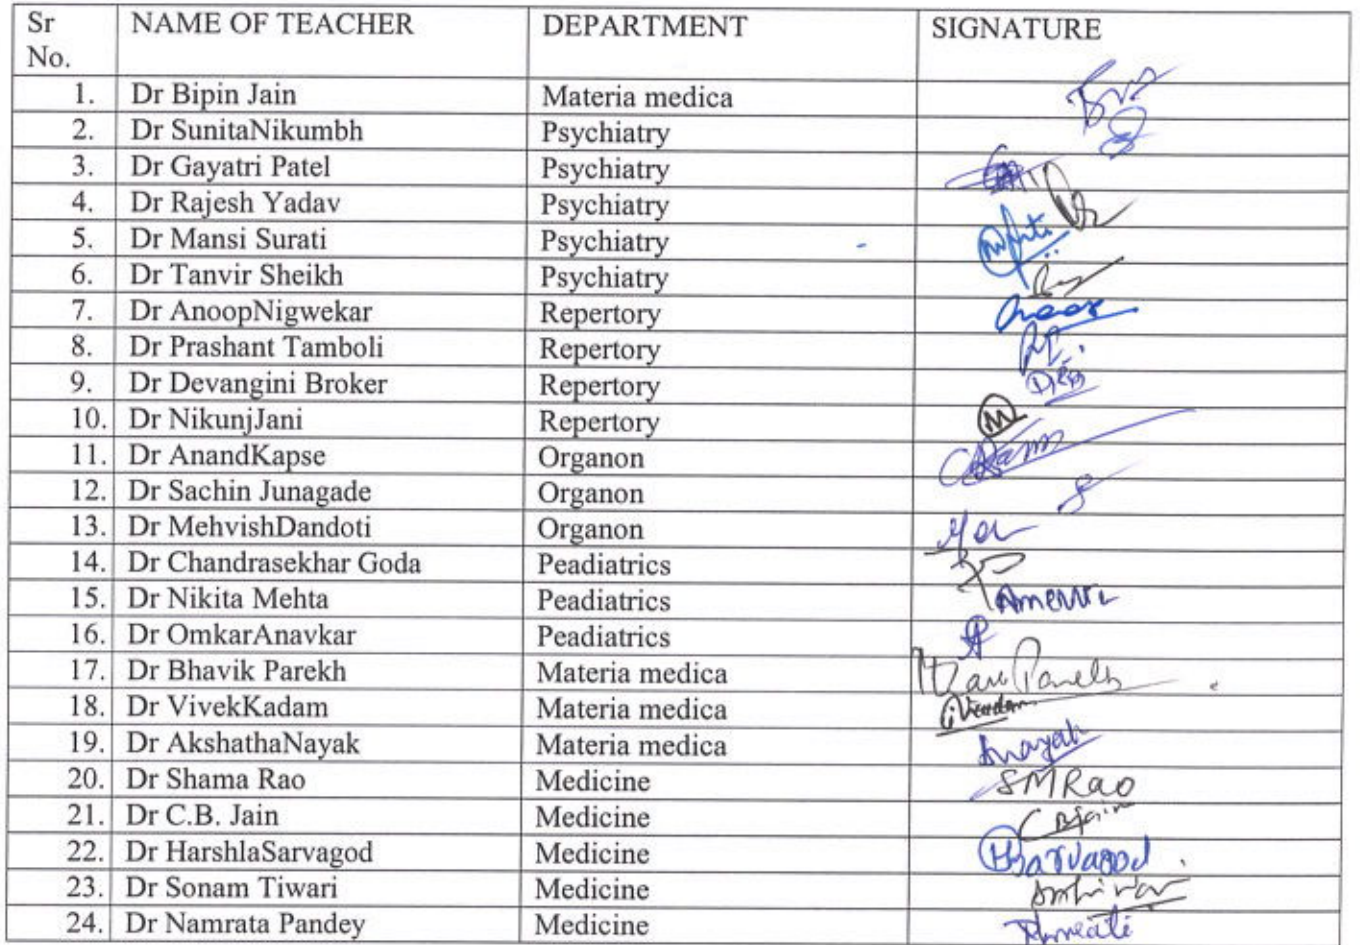 Sr No. NAME OF TEACHER DEPARTMENT SIGNATURE
1. Dr Bipin Jain Materia medica
2. Dr SunitaNikumbh Psychiatry
3. Dr Gayatri Patel Psychiatry
4. Dr Rajesh Yadav Psychiatry
5. Dr Mansi Surati Psychiatry
6. Dr Tanvir Sheikh Psychiatry
7. Dr AnoopNigwekar Repertory
8. Dr Prashant Tamboli Repertory
9. Dr Devangini Broker Repertory
10. Dr NikunjJani Repertory
11. Dr AnandKapse Organon
12. Dr Sachin Junagade Organon
13. Dr MehvishDandoti Organon
14. Dr Chandrasekhar Goda Peadiatrics
15. Dr Nikita Mehta Peadiatrics
16. Dr OmkarAnavkar Peadiatrics
17. Dr Bhavik Parekh Materia medica
18. Dr VivekKadam Materia medica
19. Dr AkshathaNayak Materia medica
20. Dr Shama Rao Medicine SMRao
21. Dr C.B. Jain Medicine
22. Dr HarshlaSarvagod Medicine
23. Dr Sonam Tiwari Medicine
24. Dr Namrata Pandey Medicine